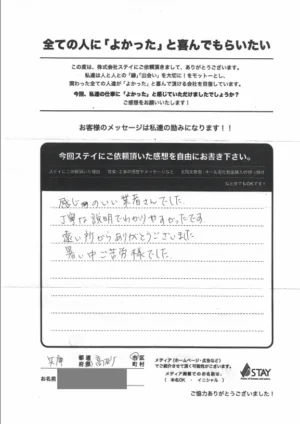 全ての人に「よかった」と喜んでもらいたい
この度は、株式会社ステイにご依頼頂きまして、ありがとうございます。
私達は人と人との「縁」「出会い」を大切に!をモットーとし、
関わった全ての人達が「よかった」と喜んで頂ける会社を目指しています。
今回、私達の仕事に「よかった」と感じていただけましたでしょうか?
ご感想をお願いいたします!
お客様のメッセージは私達の励みになります!!
今回ステイにご依頼頂いた感想を自由にお書き下さい。
ステイにご依頼頂いた理由
などなどなんでもOKです!
感じのいい業者さんでした。
丁寧な説明でわかりやすかったです
遠い所からありがとうございました
暑い中ご苦労様でした。
兵庫 都道府県 市区町村
お名前
メディア(ホームページ・広告など)
でご紹介させて頂く可能性がございます。
メディア掲載でのお名前は、
( 本名OK ・ イニシャル )
STAY
ご協力ありがとうございました!